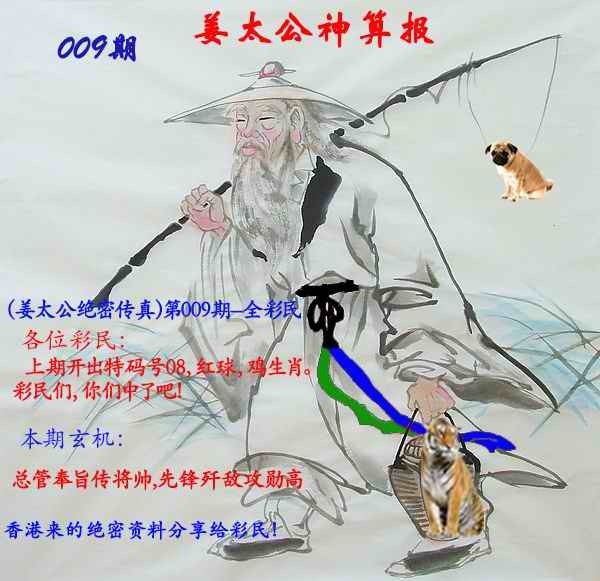 姜太公神算报
009期
(姜太公绝密传真)第009期--全彩民
各位彩民:
上期开出特码号08,红球,鸡生肖。
彩民们,你们中了吧!
本期玄机:
总管奉旨传将帅,先锋歼敌攻勋高
香港来的绝密资料分享给彩民!